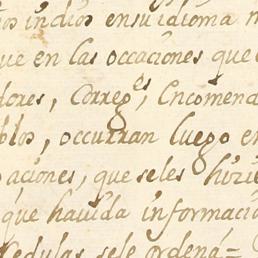 os indios en su idioma n
que en las occaciones que
dores, Correg.es, Encomend
blos, occurran luego en
aciones, que seles hizie
que hauida informacio
Cedulas sele ordená=